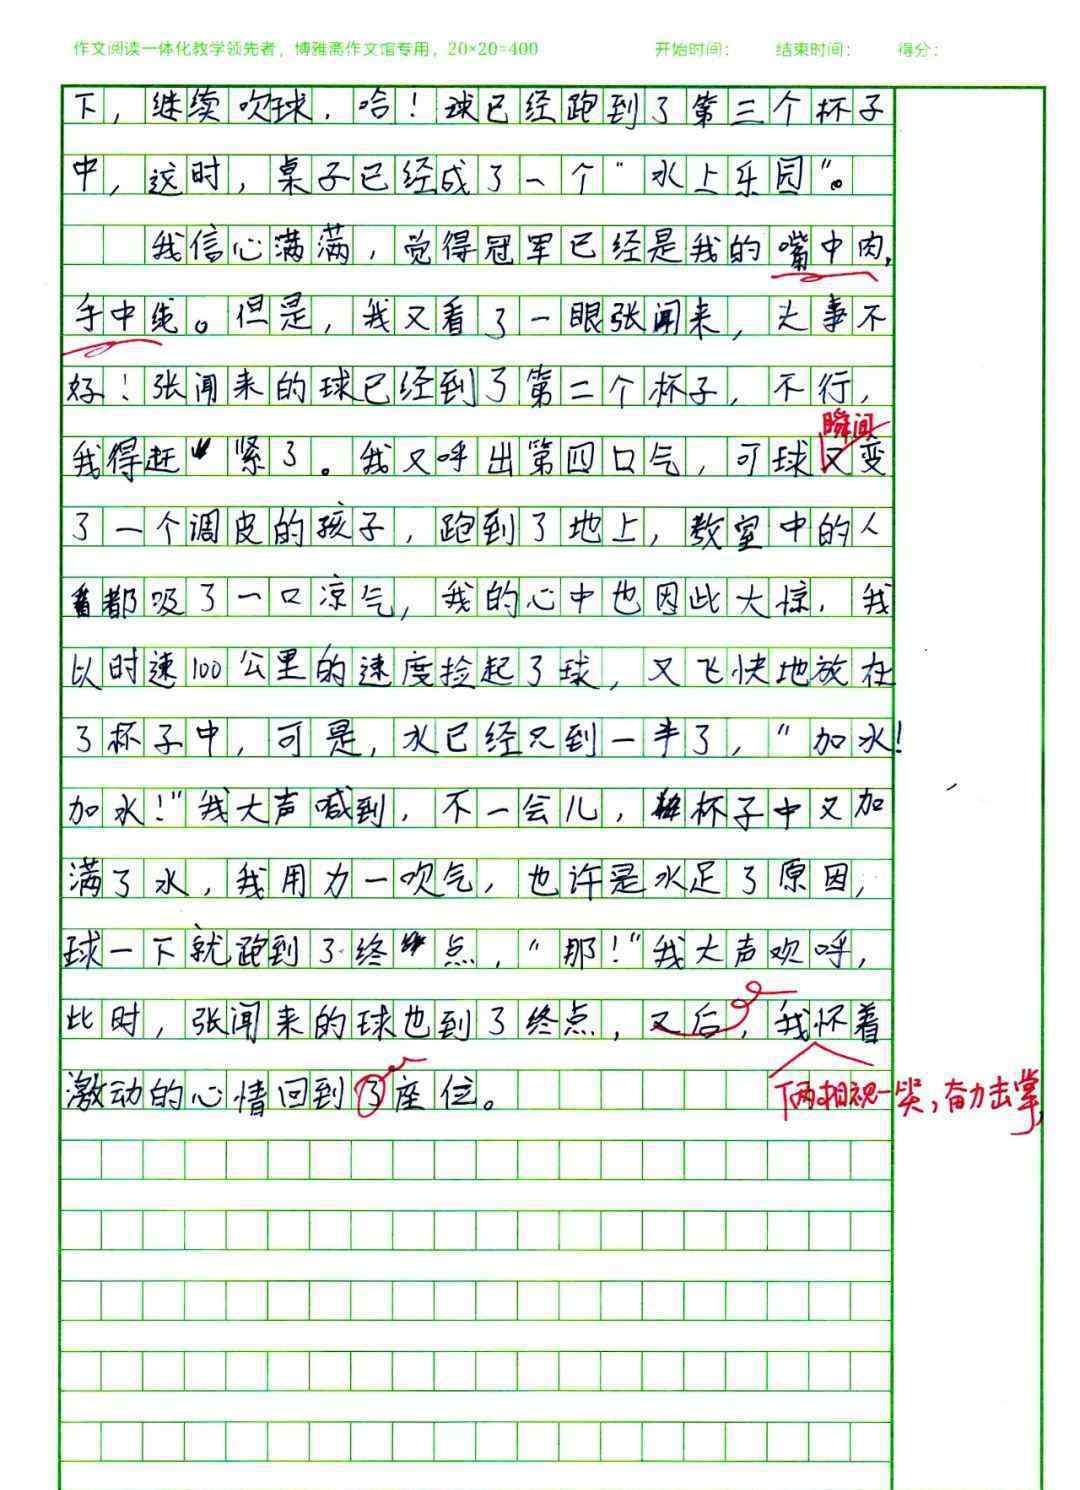 作文阅读一体化教学领先者，博雅斋作文馆专用，20×20=400 开始时间： 结束时间： 得分：
下，继续吹球，哈！球已经跑到了第三个杯子
中，这时，桌子已经成了一个“水上乐园”。
我信心满满，觉得冠军已经是我的嘴中肉，
手中绳。但是，我又看了一眼张闻来，大事不
好！张闻来的球已经到了第二个杯子，不行，
瞬间
我得赶紧了。我又呼出第四口气，可球又变
了一个调皮的孩子，跑到了地上，教室中的人
都吸了一口凉气，我的心中也因此大惊，我
以时速100公里的速度捡起了球，又飞快地放在
了杯子中，可是，水已经只到一半了，“加水！
加水！”我大声喊到，不一会儿，杯子中又加
满了水，我用力一吹气，也许是水足了原因，
球一下就跑到了终点，“那！”我大声欢呼，
此时，张闻来的球也到了终点，又后，我怀着
激动的心情回到了座位。
俩相视一笑，奋力击掌，